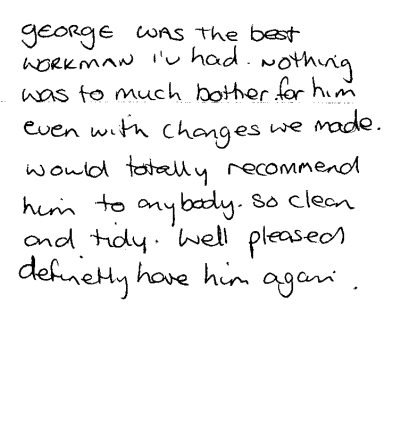 GEORGE WAS THE best
WORKMAN I'v had. Nothing
was to much bother for him
even with changes we made.
Would totally recommend
him to anybody. So clean
and tidy. Well pleased
definetly have him again.